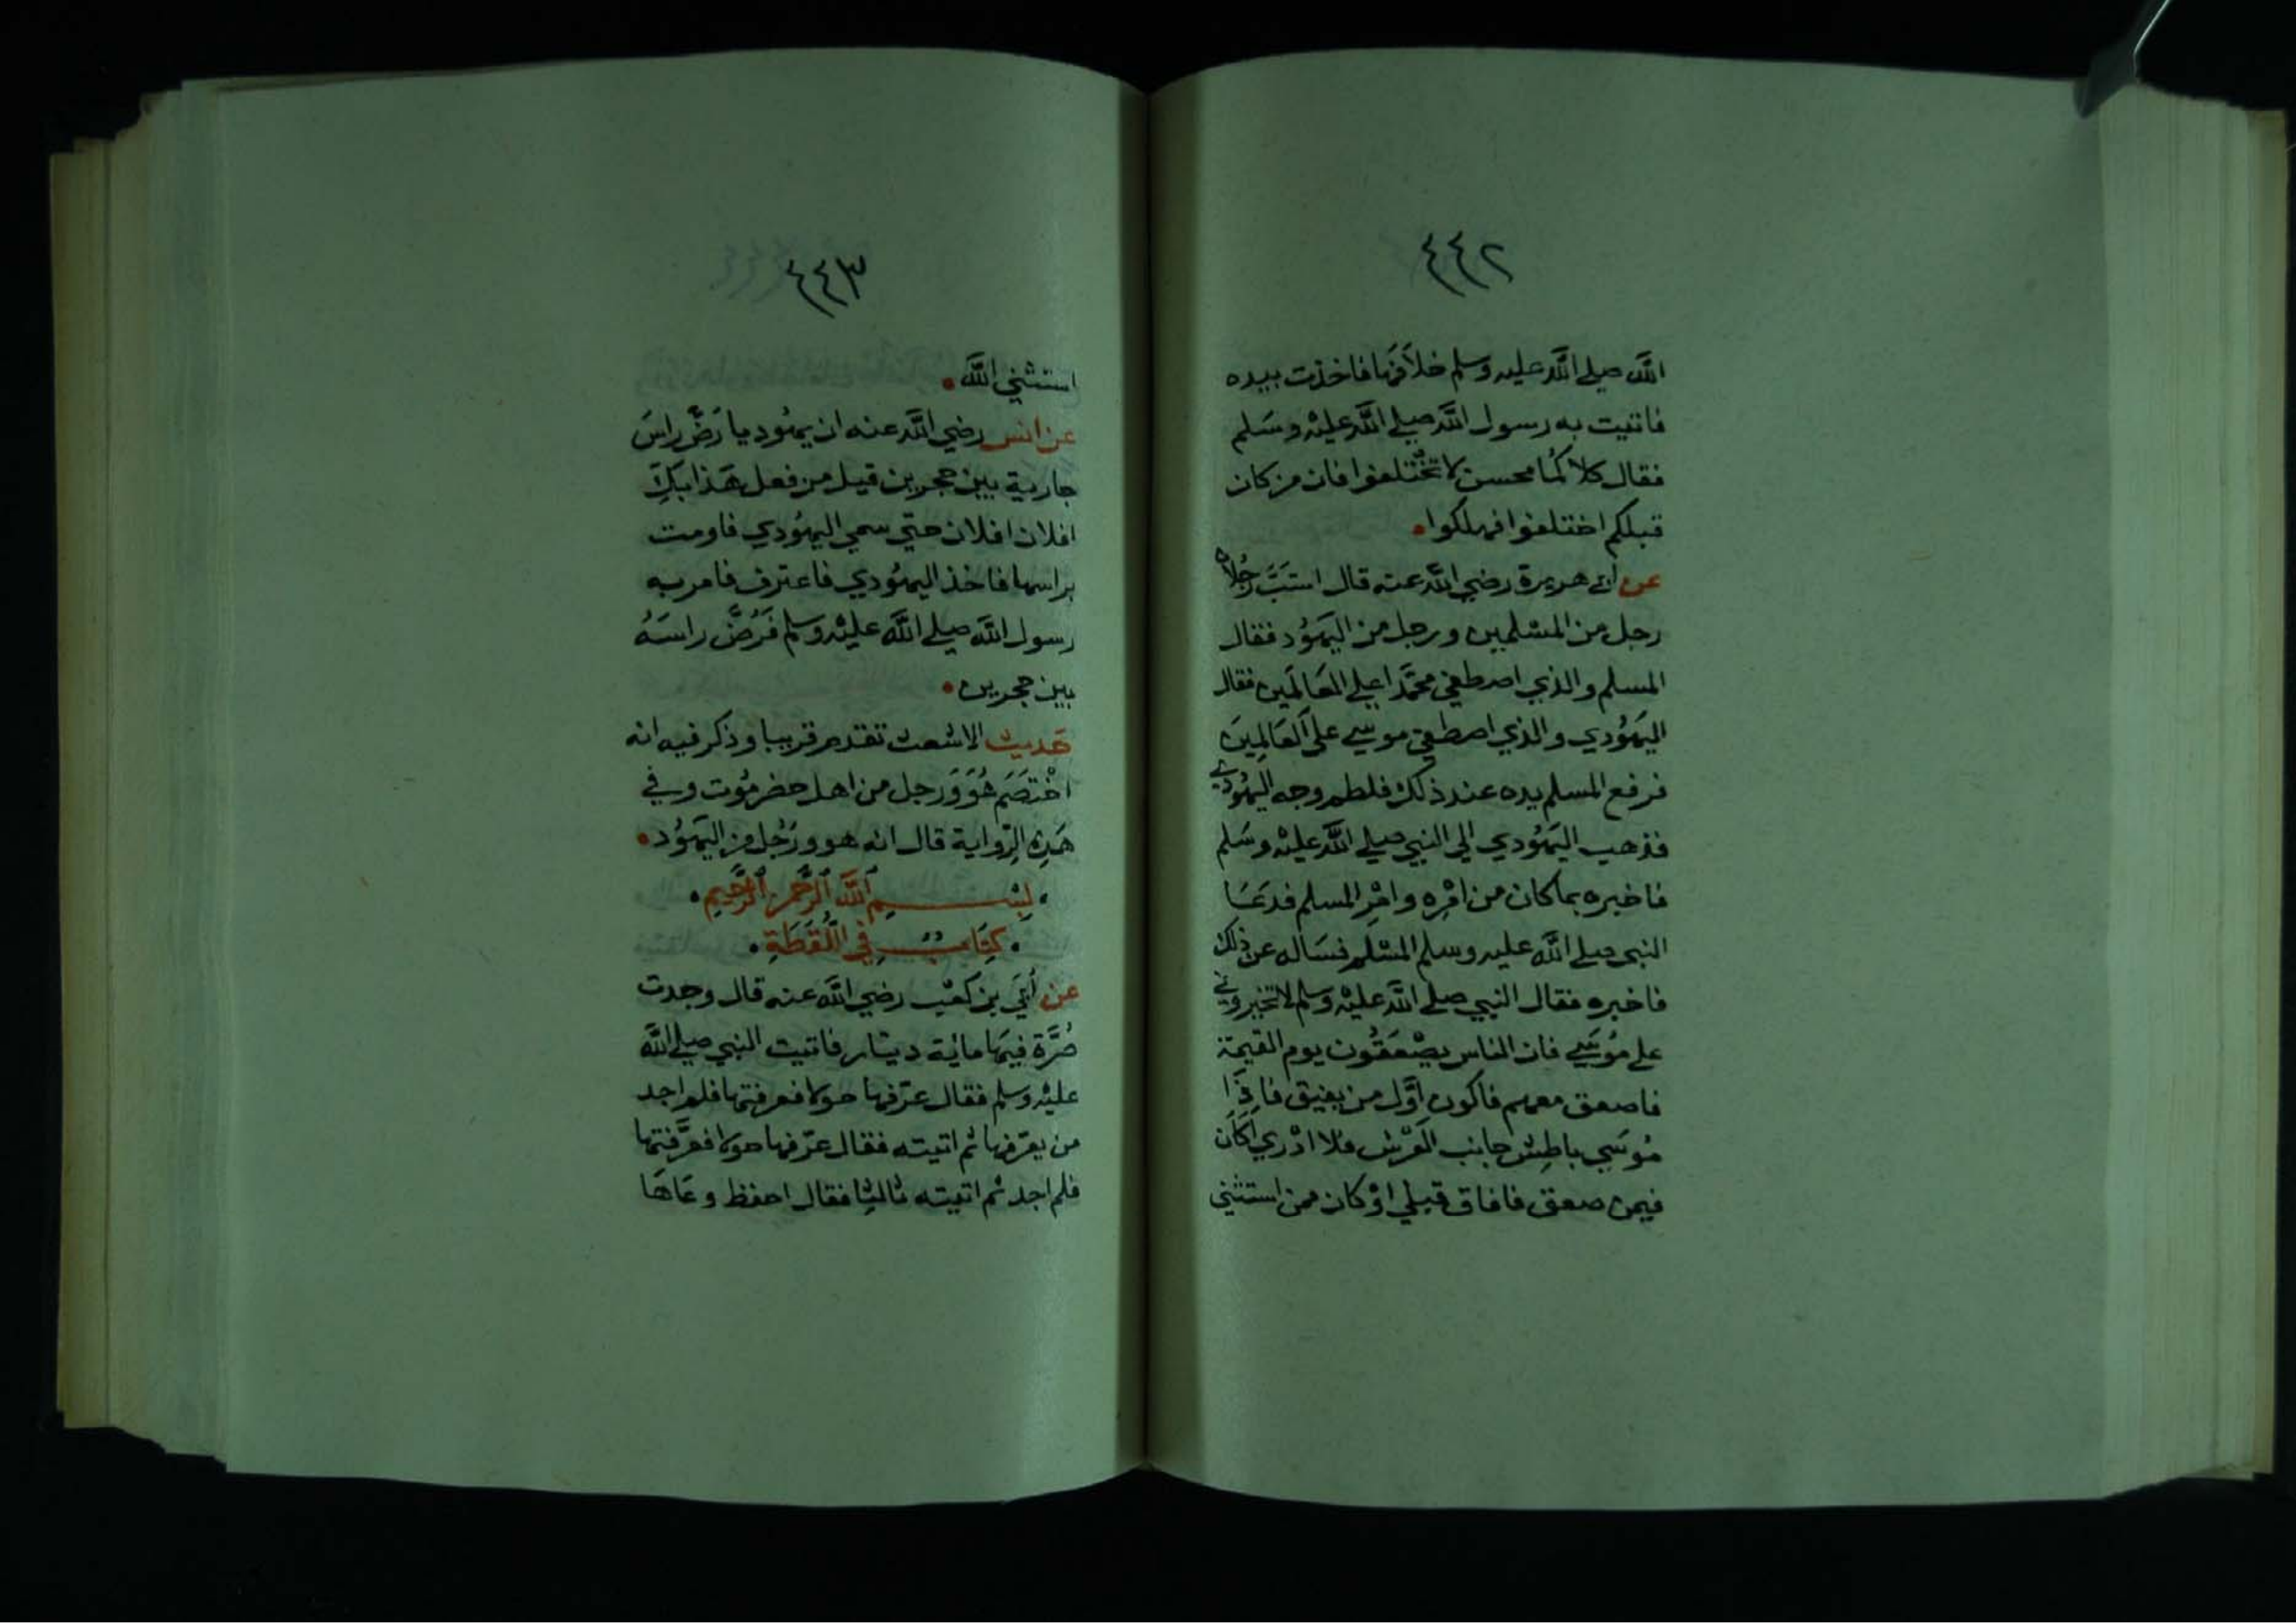 ٤٤٢
الله صلي الله عليه وسلم خلافها فاخذت بيده
فاتيت به رسول الله صلي الله عليه وسلم
فقال كلاكما محسن لا تختلفوا فان من كان
قبلكم اختلفوا فهلكوا
عن أبي هريرة رضي الله عنه قال استبَّ رجلان
رجل من المسلمين ورجل من اليهود فقال
المسلم والذي اصطفي محمدا علي العالمين فقال
اليهودي والذي اصطفي موسي على العالمين
فرفع المسلم يده عند ذلك فلطم وجه اليهودي
فذهب اليهودي الي النبي صلي الله عليه وسلم
فاخبره بما كان من امره وامر المسلم فدعا
النبي صلي الله عليه وسلم المسلم فساله عن ذلك
فاخبره فقال النبي صلي الله عليه وسلم لا تخيروني
علي موسي فان الناس يصعقون يوم القيمة
فاصعق معهم فاكون اوَّل من يفيق فاذا
موسي باطش جانب العرش فلا ادري اكان
فيمن صعق فافاق قبلي او كان ممن استثني
٤٤٣
استثني الله
عن انس رضي الله عنه ان يهوديا رضَّ راس
جارية بين حجرين قيل من فعل هذا بك
افلان افلان حتي سمي اليهودي فاومت
براسها فاخذ اليهودي فاعترف فامر به
رسول الله صلي الله عليه وسلم فرُضَّ راسه
بين حجرين
حديث الاشعث تقدم قريبا وذكر فيه انه
اختصم هو ورجل من اهل حضرموت وفي
هذه الرواية قال انه هو ورجل من اليهود
بسم الله الرحمن الرحيم
كتاب في اللقطة
عن أبي بن كعب رضي الله عنه قال وجدت
صرَّة فيها مائة دينار فاتيت النبي صلي الله
عليه وسلم فقال عرّفها حولا فعرفتها فلم اجد
من يعرّفها ثم اتيته فقال عرّفها حولا فعرَّفتها
فلم اجد ثم اتيته ثالثا فقال احفظ وعاها